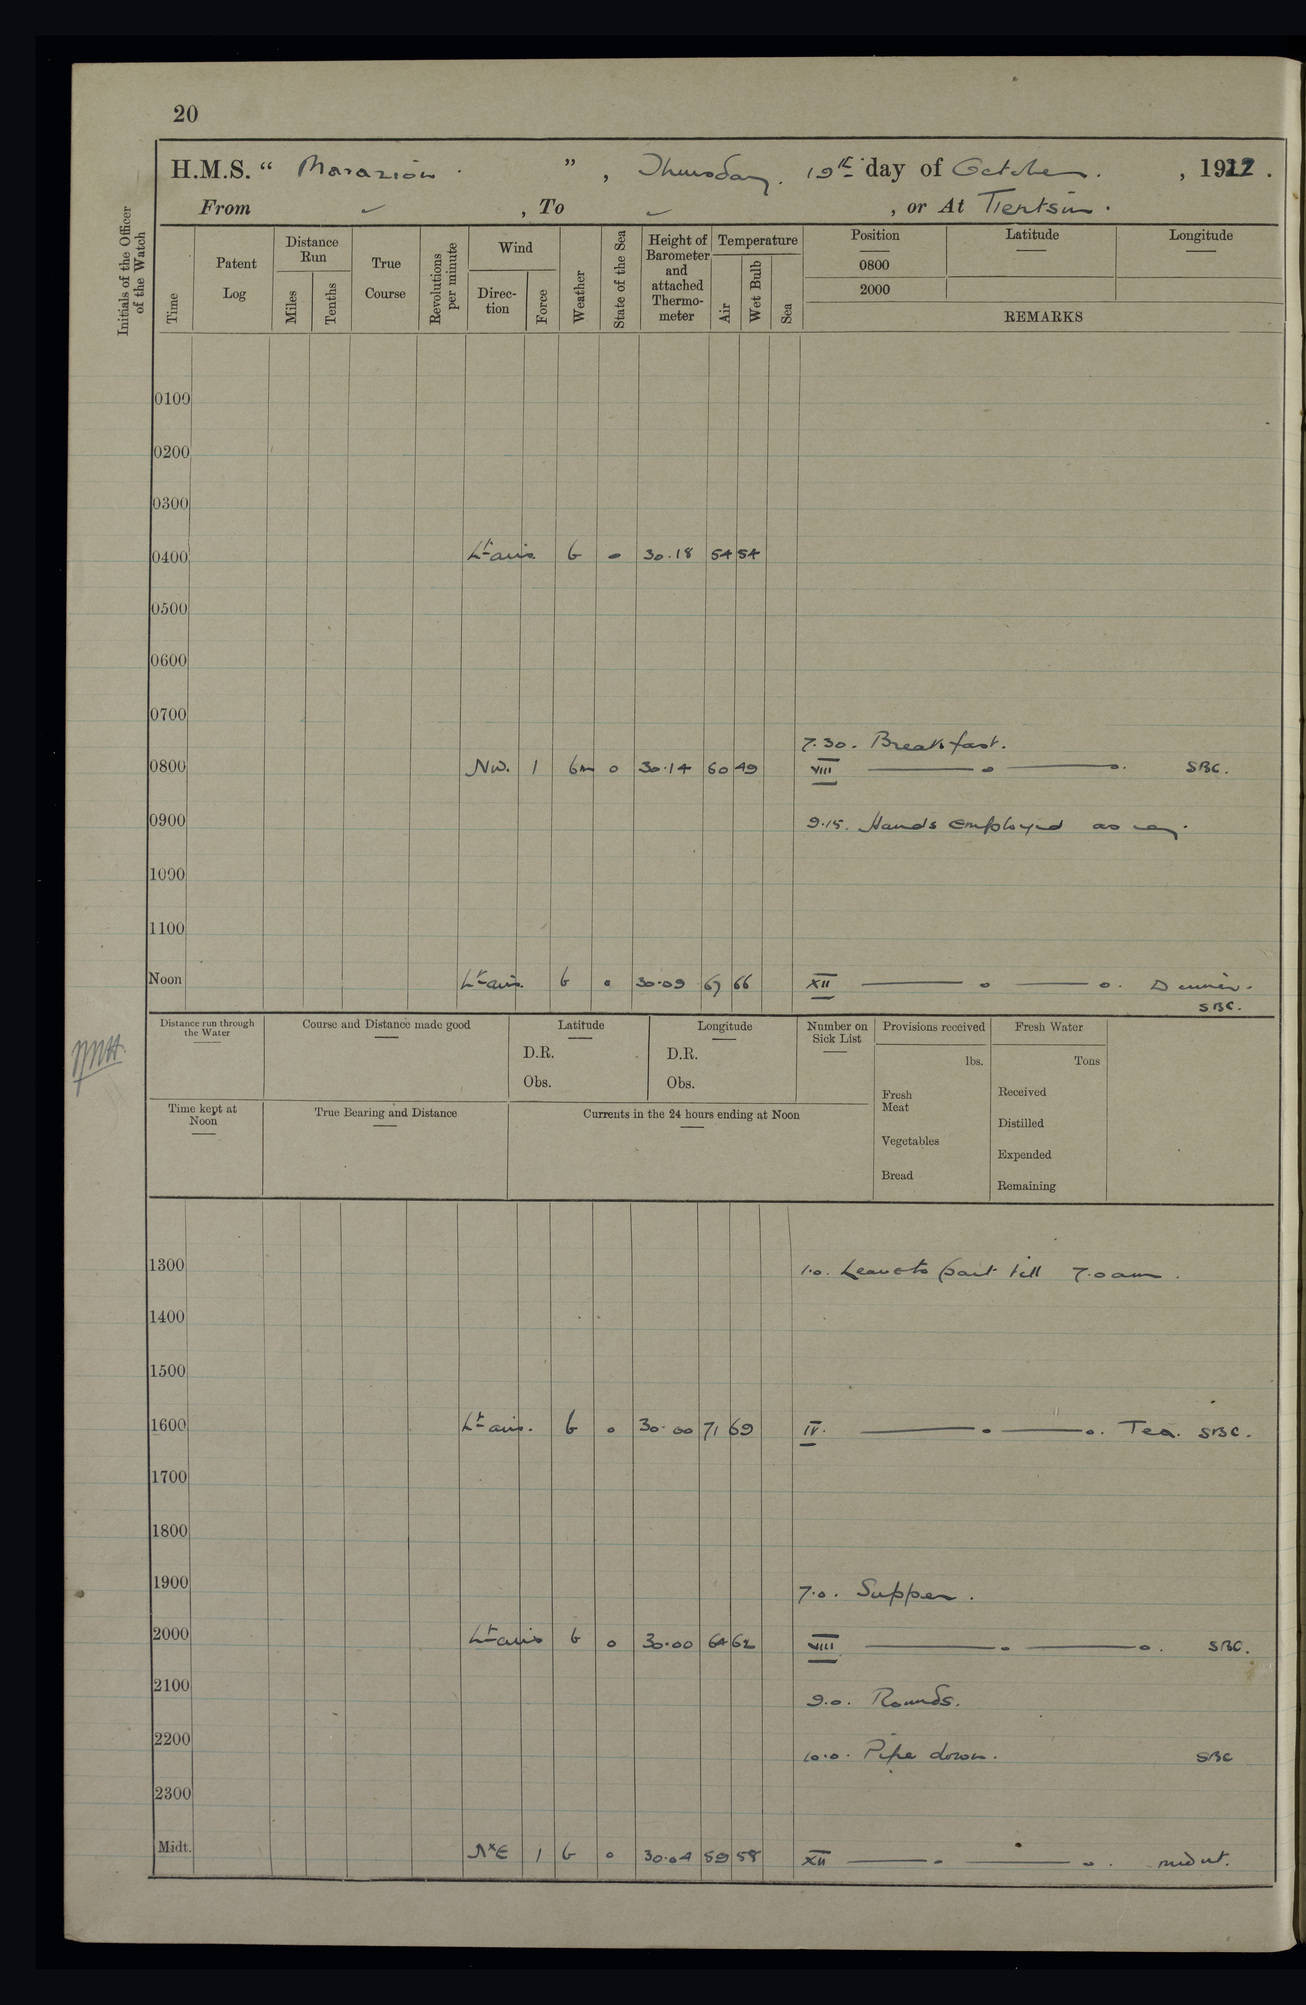 20
H.M.S. “ Marazion ” , Thursday. 19th day of October. , 1922 .
From ✓ , To ✓ , or At Tientsin .
Initials of the Officer of the Watch
Time
Patent Log
Distance Run
Miles
Tenths
True Course
Revolutions per minute
Wind
Direc-tion
Force
Weather
State of the Sea
Height of Barometer and attached Thermo-meter
Temperature
Air
Wet Bulb
Sea
Position
Latitude
Longitude
0800
2000
REMARKS
0100
0200
0300
0400 Lt airs b o 30.18 54 54
0500
0600
0700
7.30. Breakfast.
0800 NW. 1 bm o 30.14 60 49 VIII —— o —— o. SBC.
0900 9.15. Hands employed as req.
1000
1100
Noon Lt airs. b o 30.09 67 66 XII —— o —— o. Dinner.
SBC.
Distance run through the Water
Course and Distance made good
Latitude
D.R.
Obs.
Longitude
D.R.
Obs.
Number on Sick List
Provisions received
lbs.
Fresh Meat
Vegetables
Bread
Fresh Water
Tons
Received
Distilled
Expended
Remaining
Time kept at Noon
True Bearing and Distance
Currents in the 24 hours ending at Noon
1300 1.0. Leave to part till 7.0 am .
1400
1500
1600 Lt airs. b o 30.00 71 69 IV. —— o —— o. Tea. SBC.
1700
1800
1900 7.0. Supper .
2000 Lt airs b o 30.00 64 62 VIII —— o —— o . SBC.
2100 9.0. Rounds.
2200 10.0. Pipe down. SBC
2300
Midt. NxE 1 b o 30.04 59 58 XII —— o —— o . midnt.